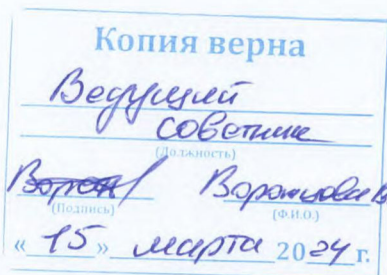 Копия верна
Ведущий
советник
(Должность)
Воронцова В
(Подпись) (Ф.И.О.)
«15» марта 2024 г.